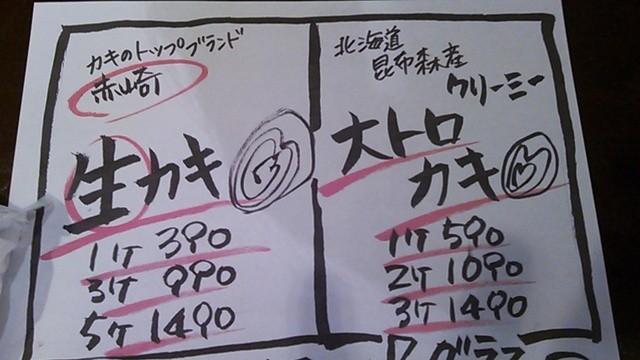 カキのトップブランド
赤崎
生カキ
1ケ 390
3ケ 990
5ケ 1490
北海道
昆布森産
クリーミー
大トロ
カキ
1ケ 590
2ケ 1090
3ケ 1490